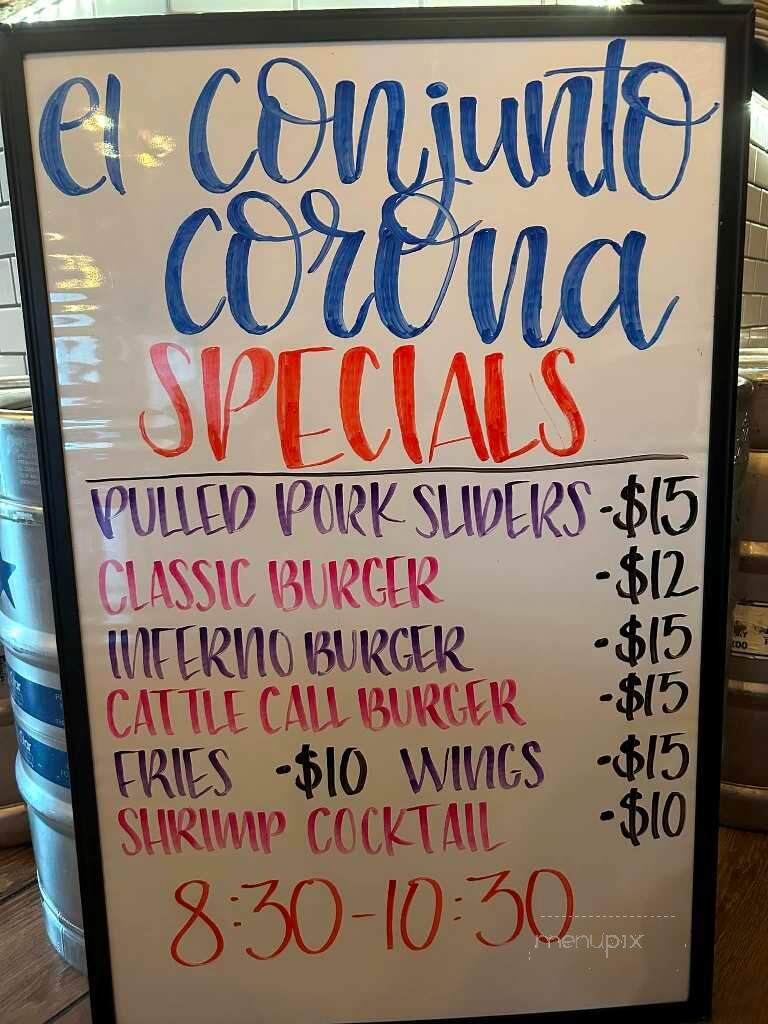 el conjunto
corona
SPECIALS
PULLED PORK SLIDERS -$15
CLASSIC BURGER -$12
INFERNO BURGER -$15
CATTLE CALL BURGER -$15
FRIES -$10 WINGS -$15
SHRIMP COCKTAIL -$10
8:30-10:30
menupix